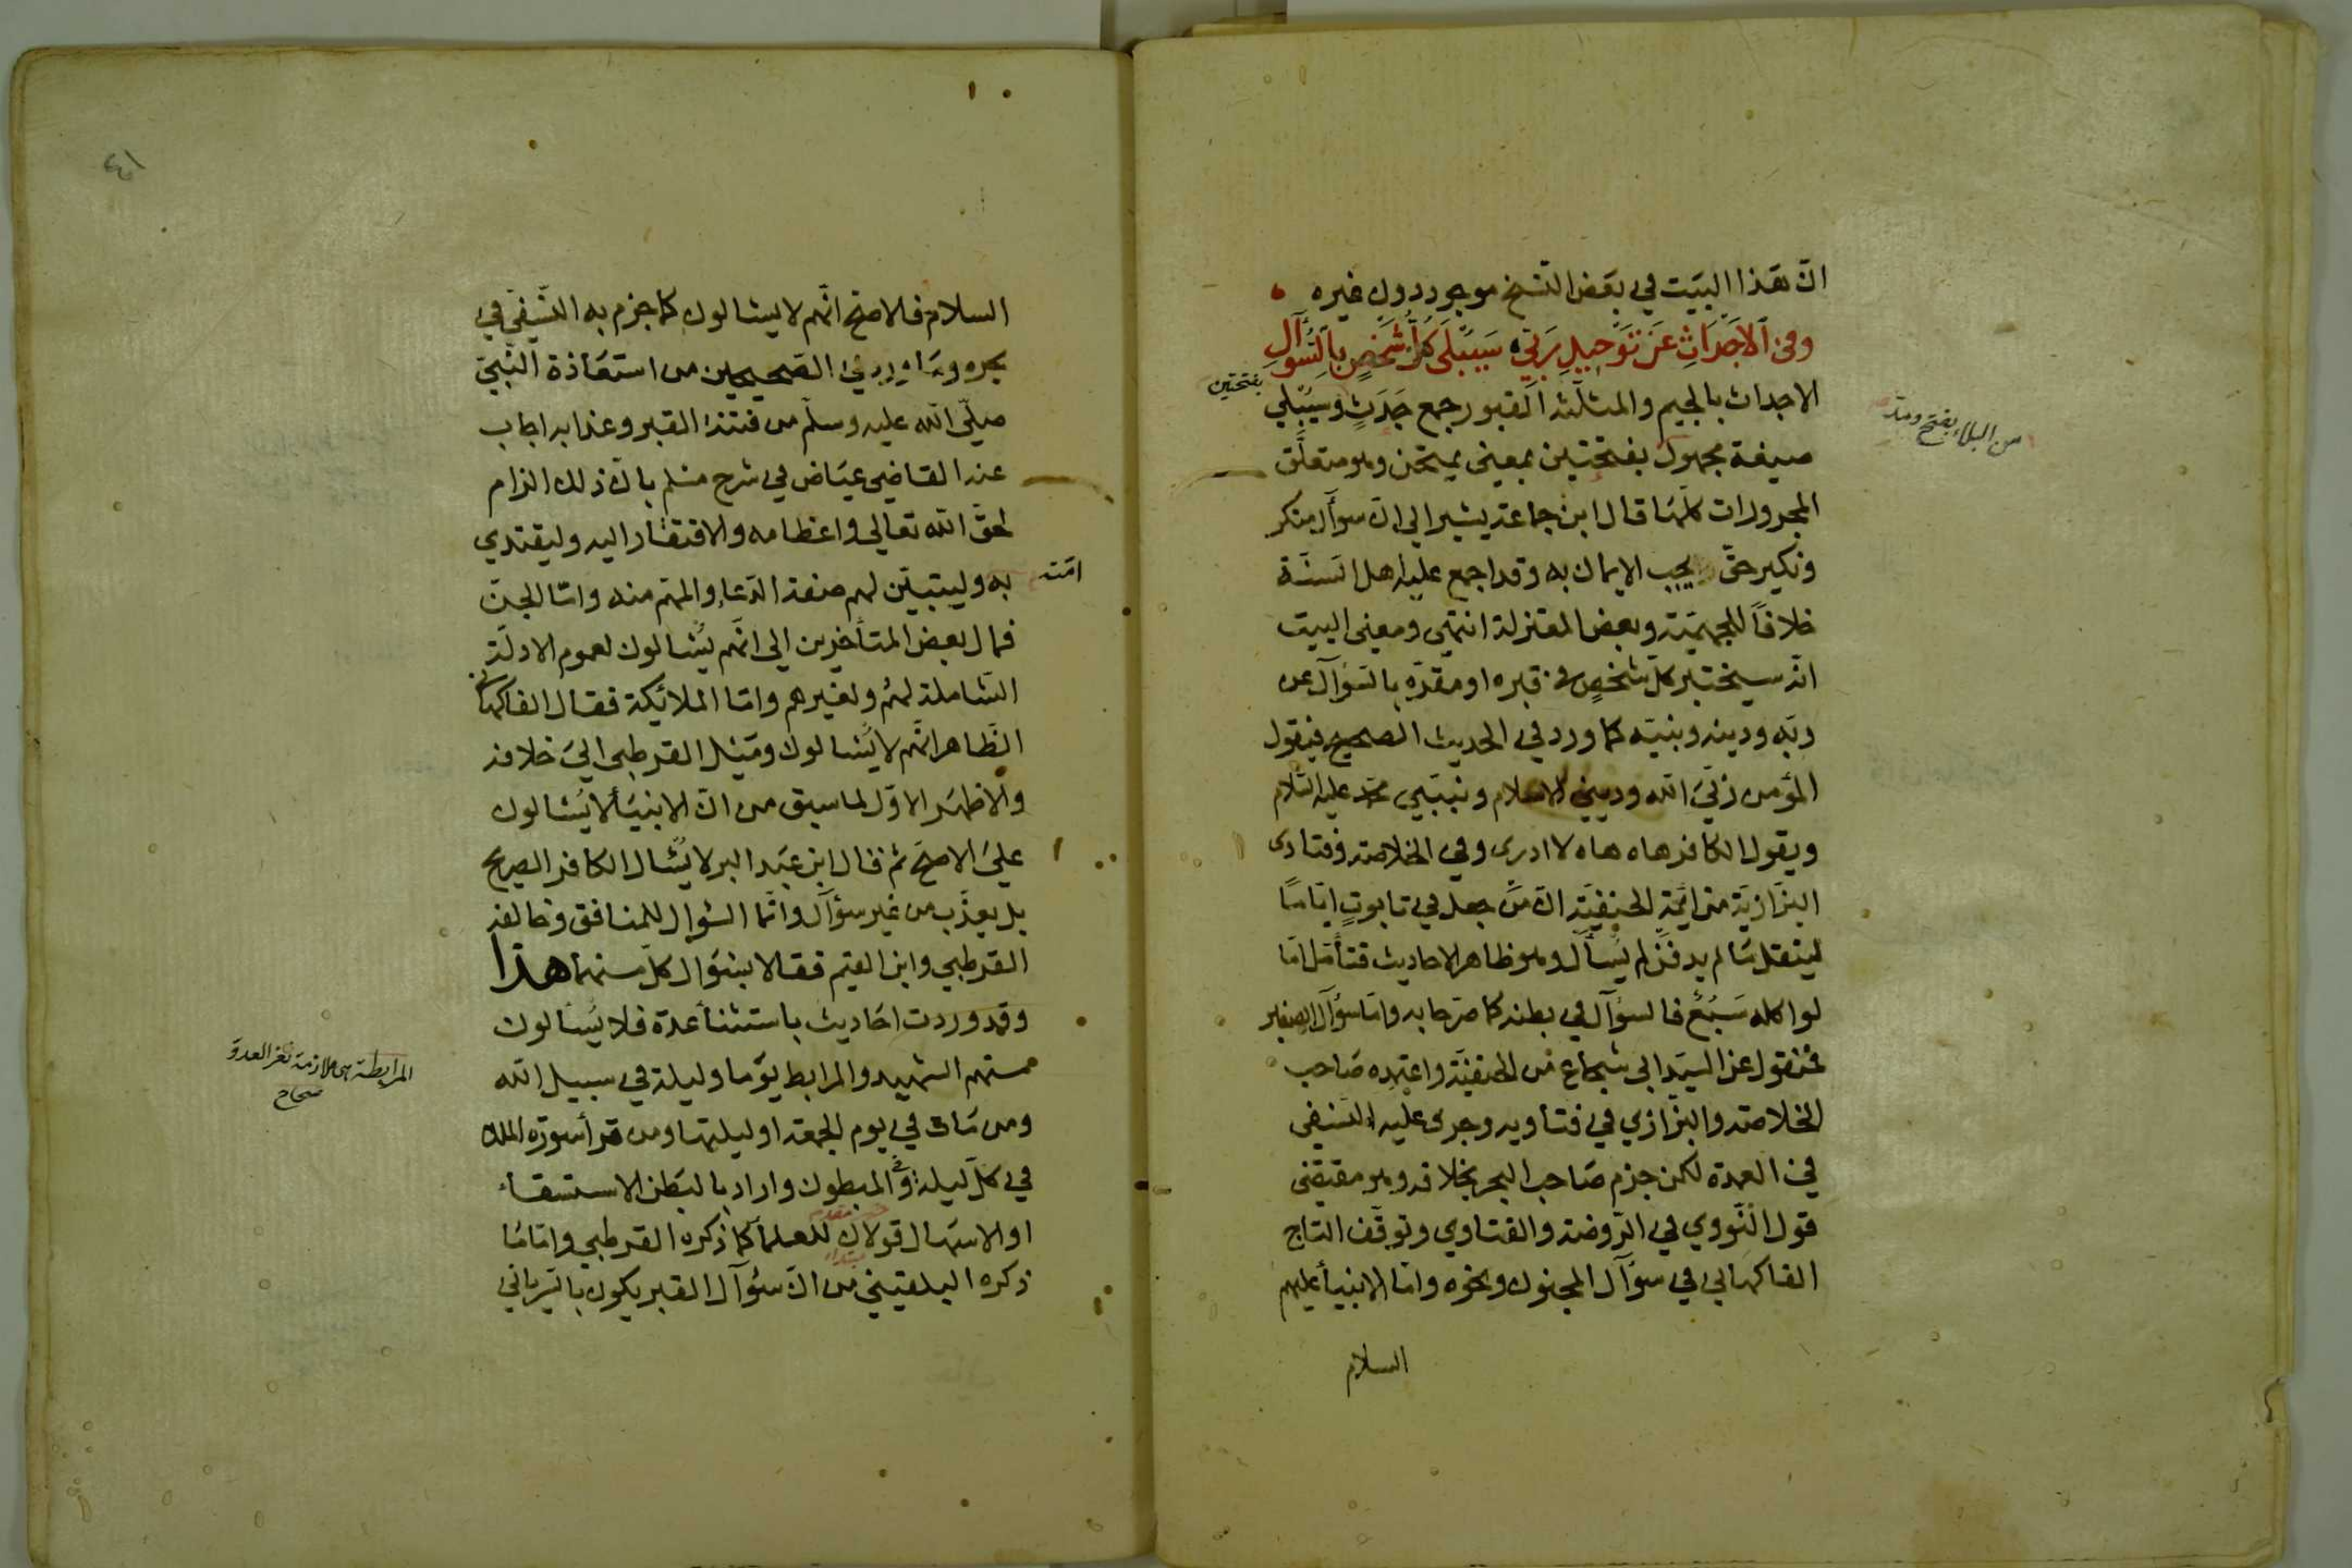 انّ هذا البيت في بعض النسخ موجود دون غيره
وفي الأجداث عن توحيد ربّي سيبلى كلّ شخص بالسؤال
الاجداث بالجيم والمثلّثة القبور جمع جَدَث وسيُبلي
بفتحتين
من البلاء بفتح ومدّ
صيغة مجهول بفتحتين بمعنى يمتحن وهو متعلّق
المجرورات كلّها قال ابن جماعة يشير الى انّ سؤال منكر
ونكير حقّ يجب الايمان به وقد اجمع عليه اهل السنّة
خلافاً للجهميّة وبعض المعتزلة انتهى ومعنى البيت
انّه سيختبر كلّ شخصٍ في قبره او مقرّه بالسؤال عن
ربّه ودينه ونبيّه كما ورد في الحديث الصحيح فيقول
المؤمن ربّي الله وديني الاسلام ونبيّي محمّد عليه السّلام
ويقول الكافر هاه هاه لا ادرى وفي الخلاصة وفتاوى
البزّازيّة من ائمّة الحنفيّة انّ من جعل في تابوتٍ ايّامًا
لينقل ما لم يدفن لم يُسأل وهو ظاهر الاحاديث فتأمّل امّا
لو اكله سَبُعٌ فالسؤال في بطنه كما صرّحا به وامّا سؤال الصغير
فمنقول عن السيّد ابي شجاع من الحنفيّة واعتمده صاحب
الخلاصة والبزّازي في فتاويه وجرى عليه النسفى
في العمدة لكن جزم صاحب البحر بخلافه وهو مقتضى
قول النّووي في الرّوضة والفتاوي وتوقّف التاج
الفاكهاني في سؤال المجنون ونحوه وامّا الانبيأ عليهم
السلام
٤١
السلام فالاصحّ انّهم لا يسألون كما جزم به النّسفي في
بحره وما ورد في الصحيحين من استعاذة النّبيّ
صلّى الله عليه وسلّم من فتنة القبر وعذابه اجاب
عنه القاضي عياض في شرح مسلم بانّ ذلك التزام
لحقّ الله تعالى واعظامه والافتقار اليه وليقتدي
به وليتبيّن لهم صفة الدّعاء والمهمّ منه وامّا الجنّ
امّته
فمال بعض المتأخرين الى انّهم يُسألون لعموم الادلّة
الشّاملة لهم ولغيرهم وامّا الملائكة فقال الفاكهاني
الظّاهر انّهم لا يُسألون وميّل القرطبى الى خلافه
والاظهر الاوّل لما سبق من انّ الانبيأ لا يُسألون
على الاصحّ ثم قال ابن عبد البر لا يُسأل الكافر الصريح
بل يعذّب من غير سؤال وانّما السّؤال للمنافق وخالفه
القرطبي وابن القيّم فقالا بسؤال كلّ منهما هذا
وقد وردت احاديث باستثنأ عدة فلا يُسألون
منهم الشهيد والمرابط يومًا وليلة في سبيل الله
المرابطة هى ملازمة ثغر العدوّ
صحاح
ومن مات في يوم الجمعة او ليلتها ومن قرأ سورة الملك
في كلّ ليلة والمبطون واراد بالبطن الاستسقاء
او الاسهال قولان للعلمأ كما ذكره القرطبي وامّا ما
خبر مقدم
مبتدا
ذكره البلقيني من انّ سؤال القبر يكون بالسّرياني